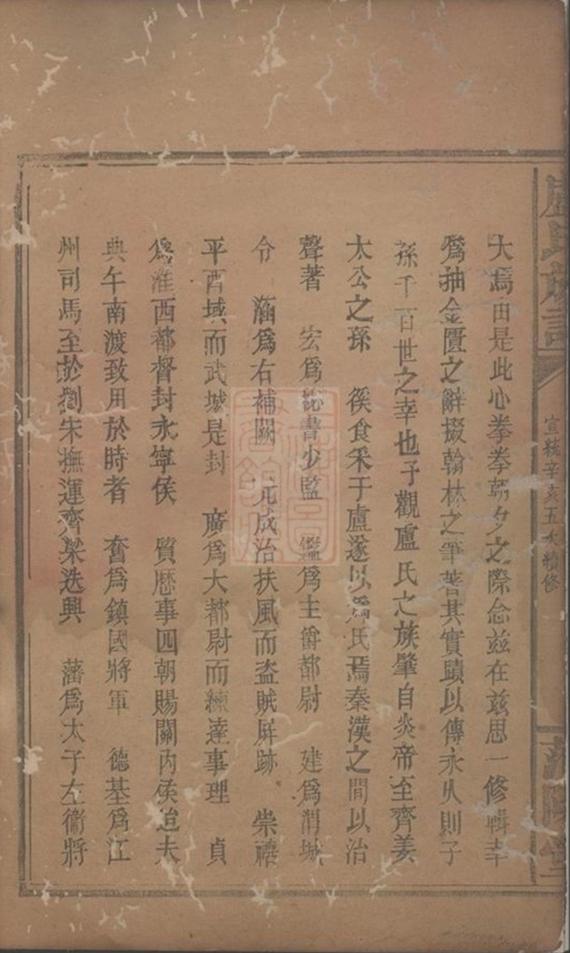 盧氏族譜
宣統辛亥五次續修
范陽堂
大焉由是此心拳拳朝夕之際念茲在茲思一修輯幸
爲抽金匱之辭掇翰林之筆著其實蹟以傳永久則子
孫千百世之幸也予觀盧氏之族肇自炎帝至齊姜
太公之孫 徯食采于盧遂以爲氏焉秦漢之間以治
聲著 宏爲秘書少監 鑑爲主爵都尉 建爲渭城
令 涵爲右補闕 元成治扶風而盗賊屏跡 崇禧
平酉域而武城是封 廣爲大都尉而練達事理 貞
爲淮西都督封永寧侯 質歷事四朝賜關内侯迨夫
典午南渡致用於時者 奮爲鎮國將軍 德基爲江
州司馬至於劉宋撫運齊梁迭興 藩爲太子左衞將